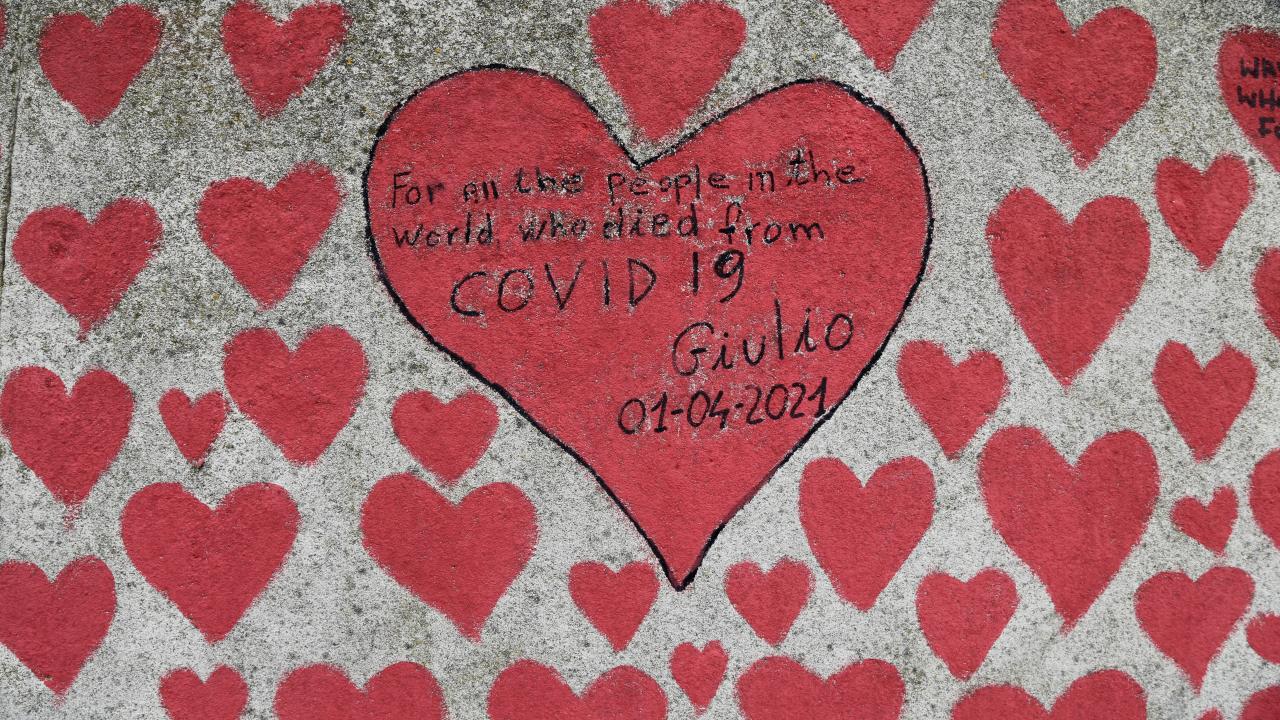 For all the people in the
world who died from
COVID 19
Giulio
01-04-2021